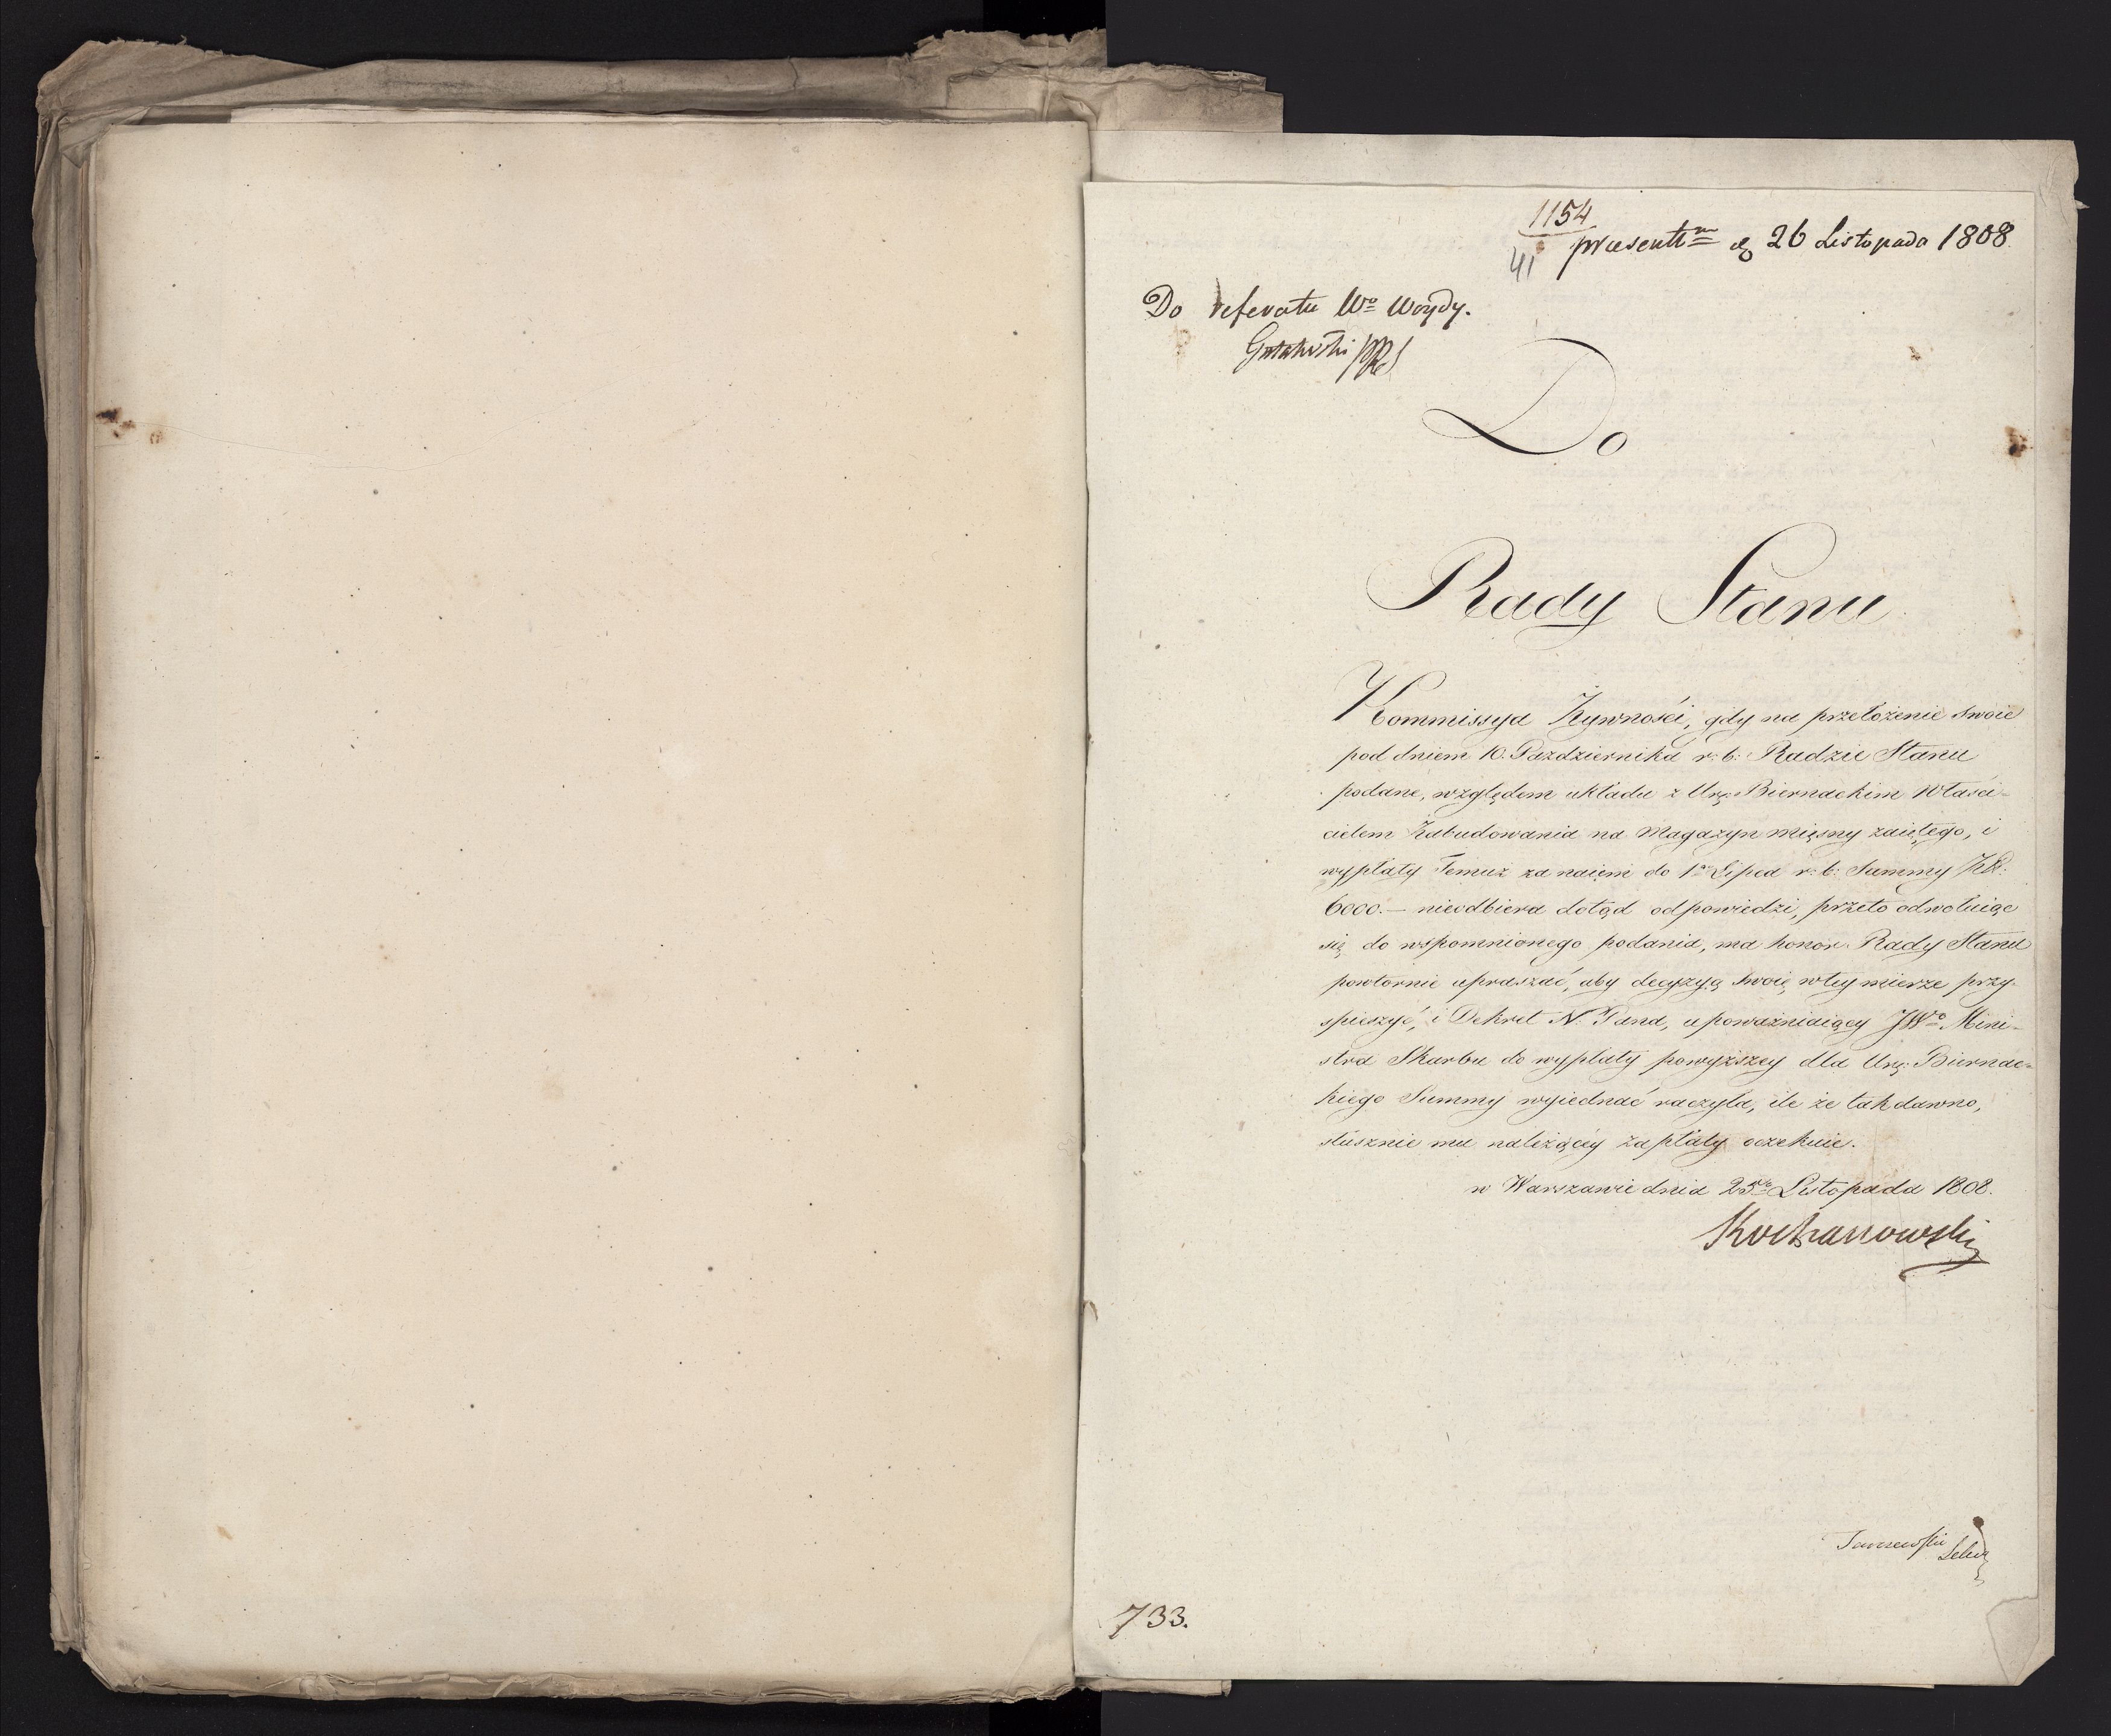 1154
41
praesentm d 26 Listopada 1808
Do referatu Wo Woydy.
Do
Rady Stanu
Kommissya Żywności, gdy na przełożenie swoie
pod dniem 10. Pazdziernika r: b: Radzie Stanu
podane, względem układu z Urę: Biernackim Właści-
cielem Zabudowania na Magazyn mięsny zaiętego, i
wypłaty Temuż za naięm do 1o Lipca r: b: Summy
6000.— nieodbiera dotąd odpowiedzi, przeto odwołuiąc
się do wspomnionego podania, ma honor Rady Stanu
powtornie upraszać, aby decyzyą swoię wtey mierze przy-
spieszyć, i Dekret N: Pana, upoważniaiący JWo Mini-
stra Skarbu do wypłaty powyższey dla Urę: Biernac-
kiego Summy wyiednać raczyła, ile że tak dawno,
słusznie mu należącéy zapłaty oczekuie.
w Warszawie dnia 25go Listopada 1808.
Kochanowski
733.